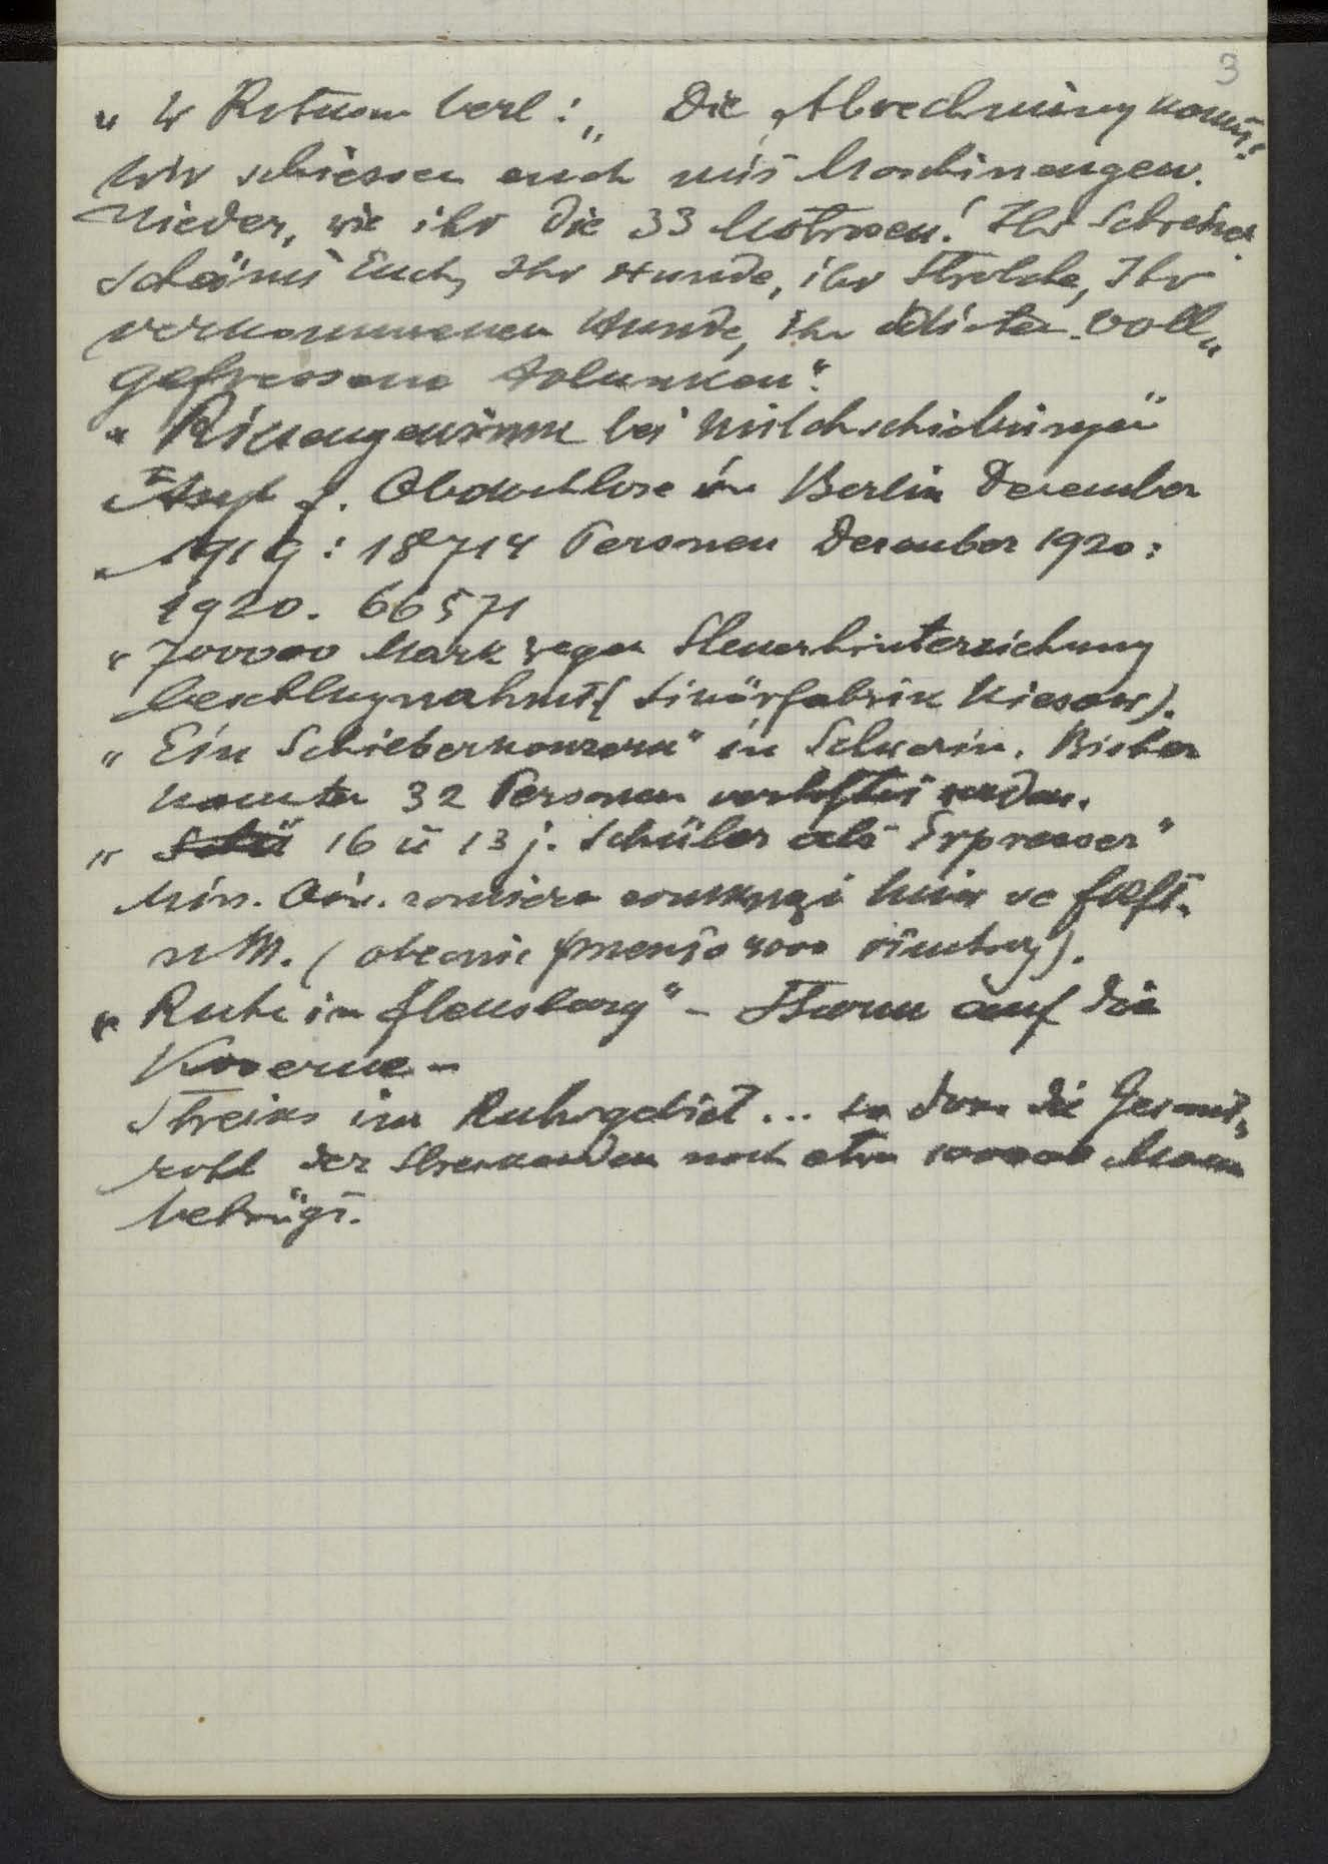 3
" W Rotmann verl: „ Die Abrechnung kommt!
Wir schiessen euch mit Maschinengew.
Nieder, wie ihr die 33 Matrosen! Ihr Schreiber
schämt Euch, Ihr Hunde, ihr Strolche, Ihr
verkommenen Hunde, Ihr voll„
gefressene Halunken".
" Riesengewinne bei Milchschiebungen"
Asyl f. Obdachlose in Berlin Dezember
" 1919: 18714 Personen Dezember 1920:
1920. 66571
" 700000 Mark wegen Steuerhinterziehung
beschlagnahmt (Likörfabrik Kiesow).
" Ein Schieberkonzern" in Schwerin. Bisher
konnten 32 Personen verhaftet werden.
" 16 ü 13 j. Schüler als Erpresser"
" Ruhe in Flensburg" - Sturm auf die
Kaserne -
Streiks im Ruhrgebiet ... die Gesamt„
zahl der Streikenden noch etwa 100000 Mann
beträgt.